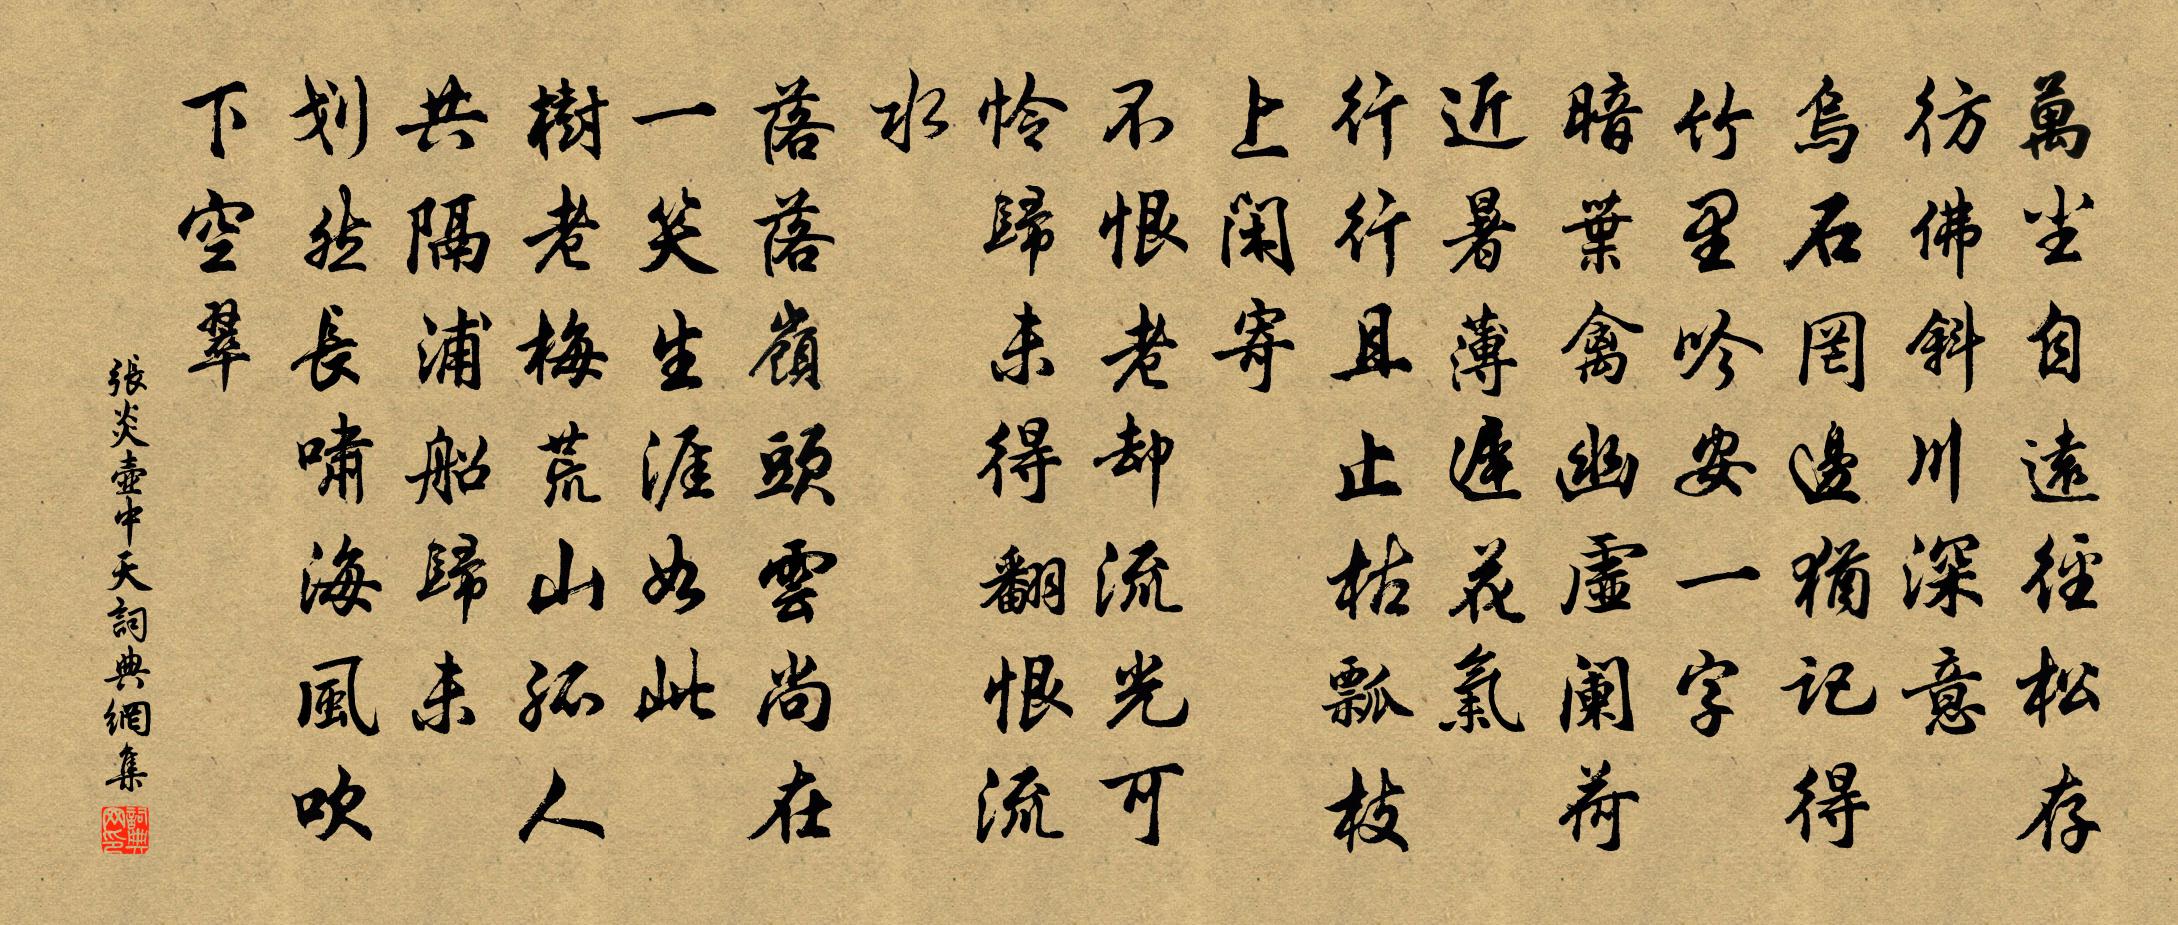 萬尘自遠徑松存
彷佛斜川深意
烏石罔邊猶記得
竹里吟安一字
暗葉禽幽虛阑荷
近暑薄遲花氣
行行且止枯瓢枝
上閑寄
不恨老却流光可
怜歸未得翻恨流
水
落落嶺頭雲尚在
一笑生涯如此
樹老梅荒山孤人
共隔浦船歸未
划然長嘯海風吹
下空翠
張炎壺中天詞典網集
詞典网印